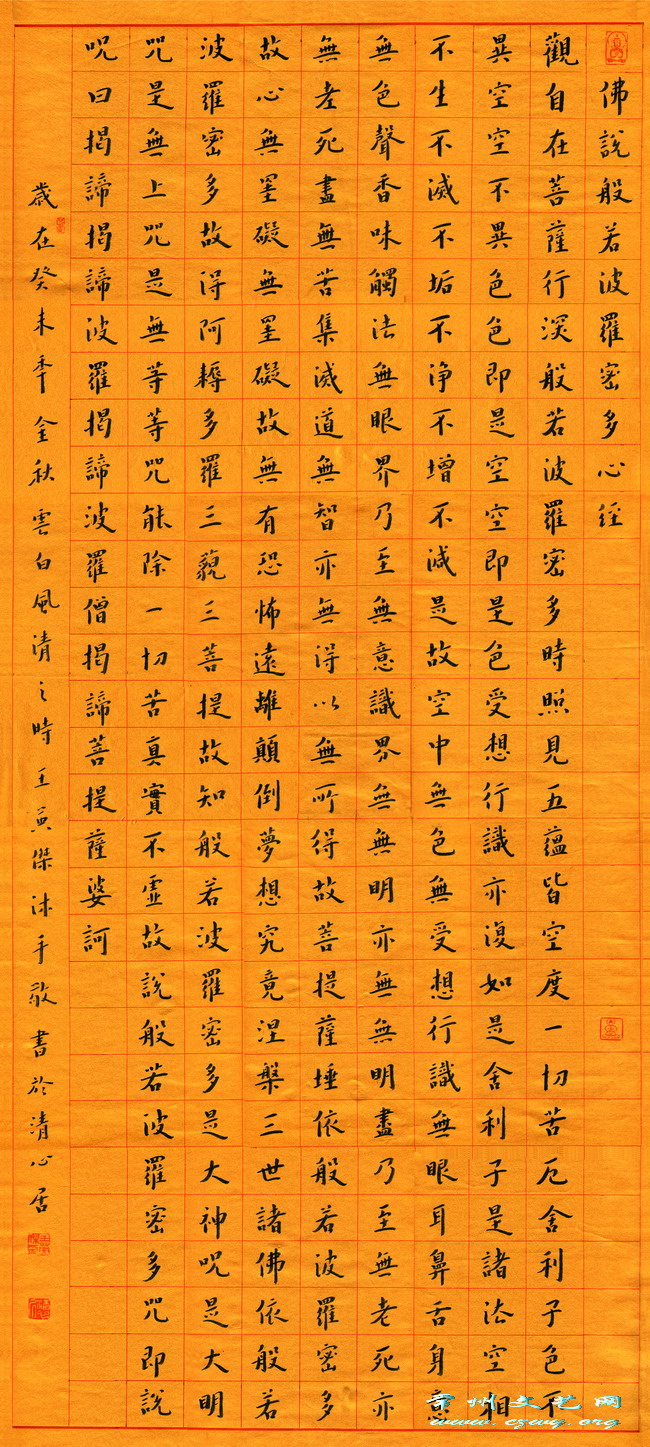 佛說般若波羅密多心经
觀自在菩薩行深般若波羅密多時照見五蘊皆空度一切苦厄舍利子色不
異空空不異色色即是空空即是色受想行識亦復如是舍利子是諸法空相
不生不滅不垢不淨不增不减是故空中無色無受想行識無眼耳鼻舌身意
無色聲香味觸法無眼界乃至無意識界無無明亦無無明盡乃至無老死亦
無老死盡無苦集滅道無智亦無得以無所得故菩提薩埵依般若波羅密多
故心無罣礙無罣礙故無有恐怖遠離顛倒夢想究竟涅槃三世諸佛依般若
波羅密多故得阿耨多羅三藐三菩提故知般若波羅密多是大神呪是大明
咒是無上咒是無等等咒能除一切苦真實不虛故說般若波羅密多咒即說
呪曰揭諦揭諦波羅揭諦波羅僧揭諦菩提薩婆訶
歲在癸未季金秋雲白風清之時王英傑沐手敬書於清心居